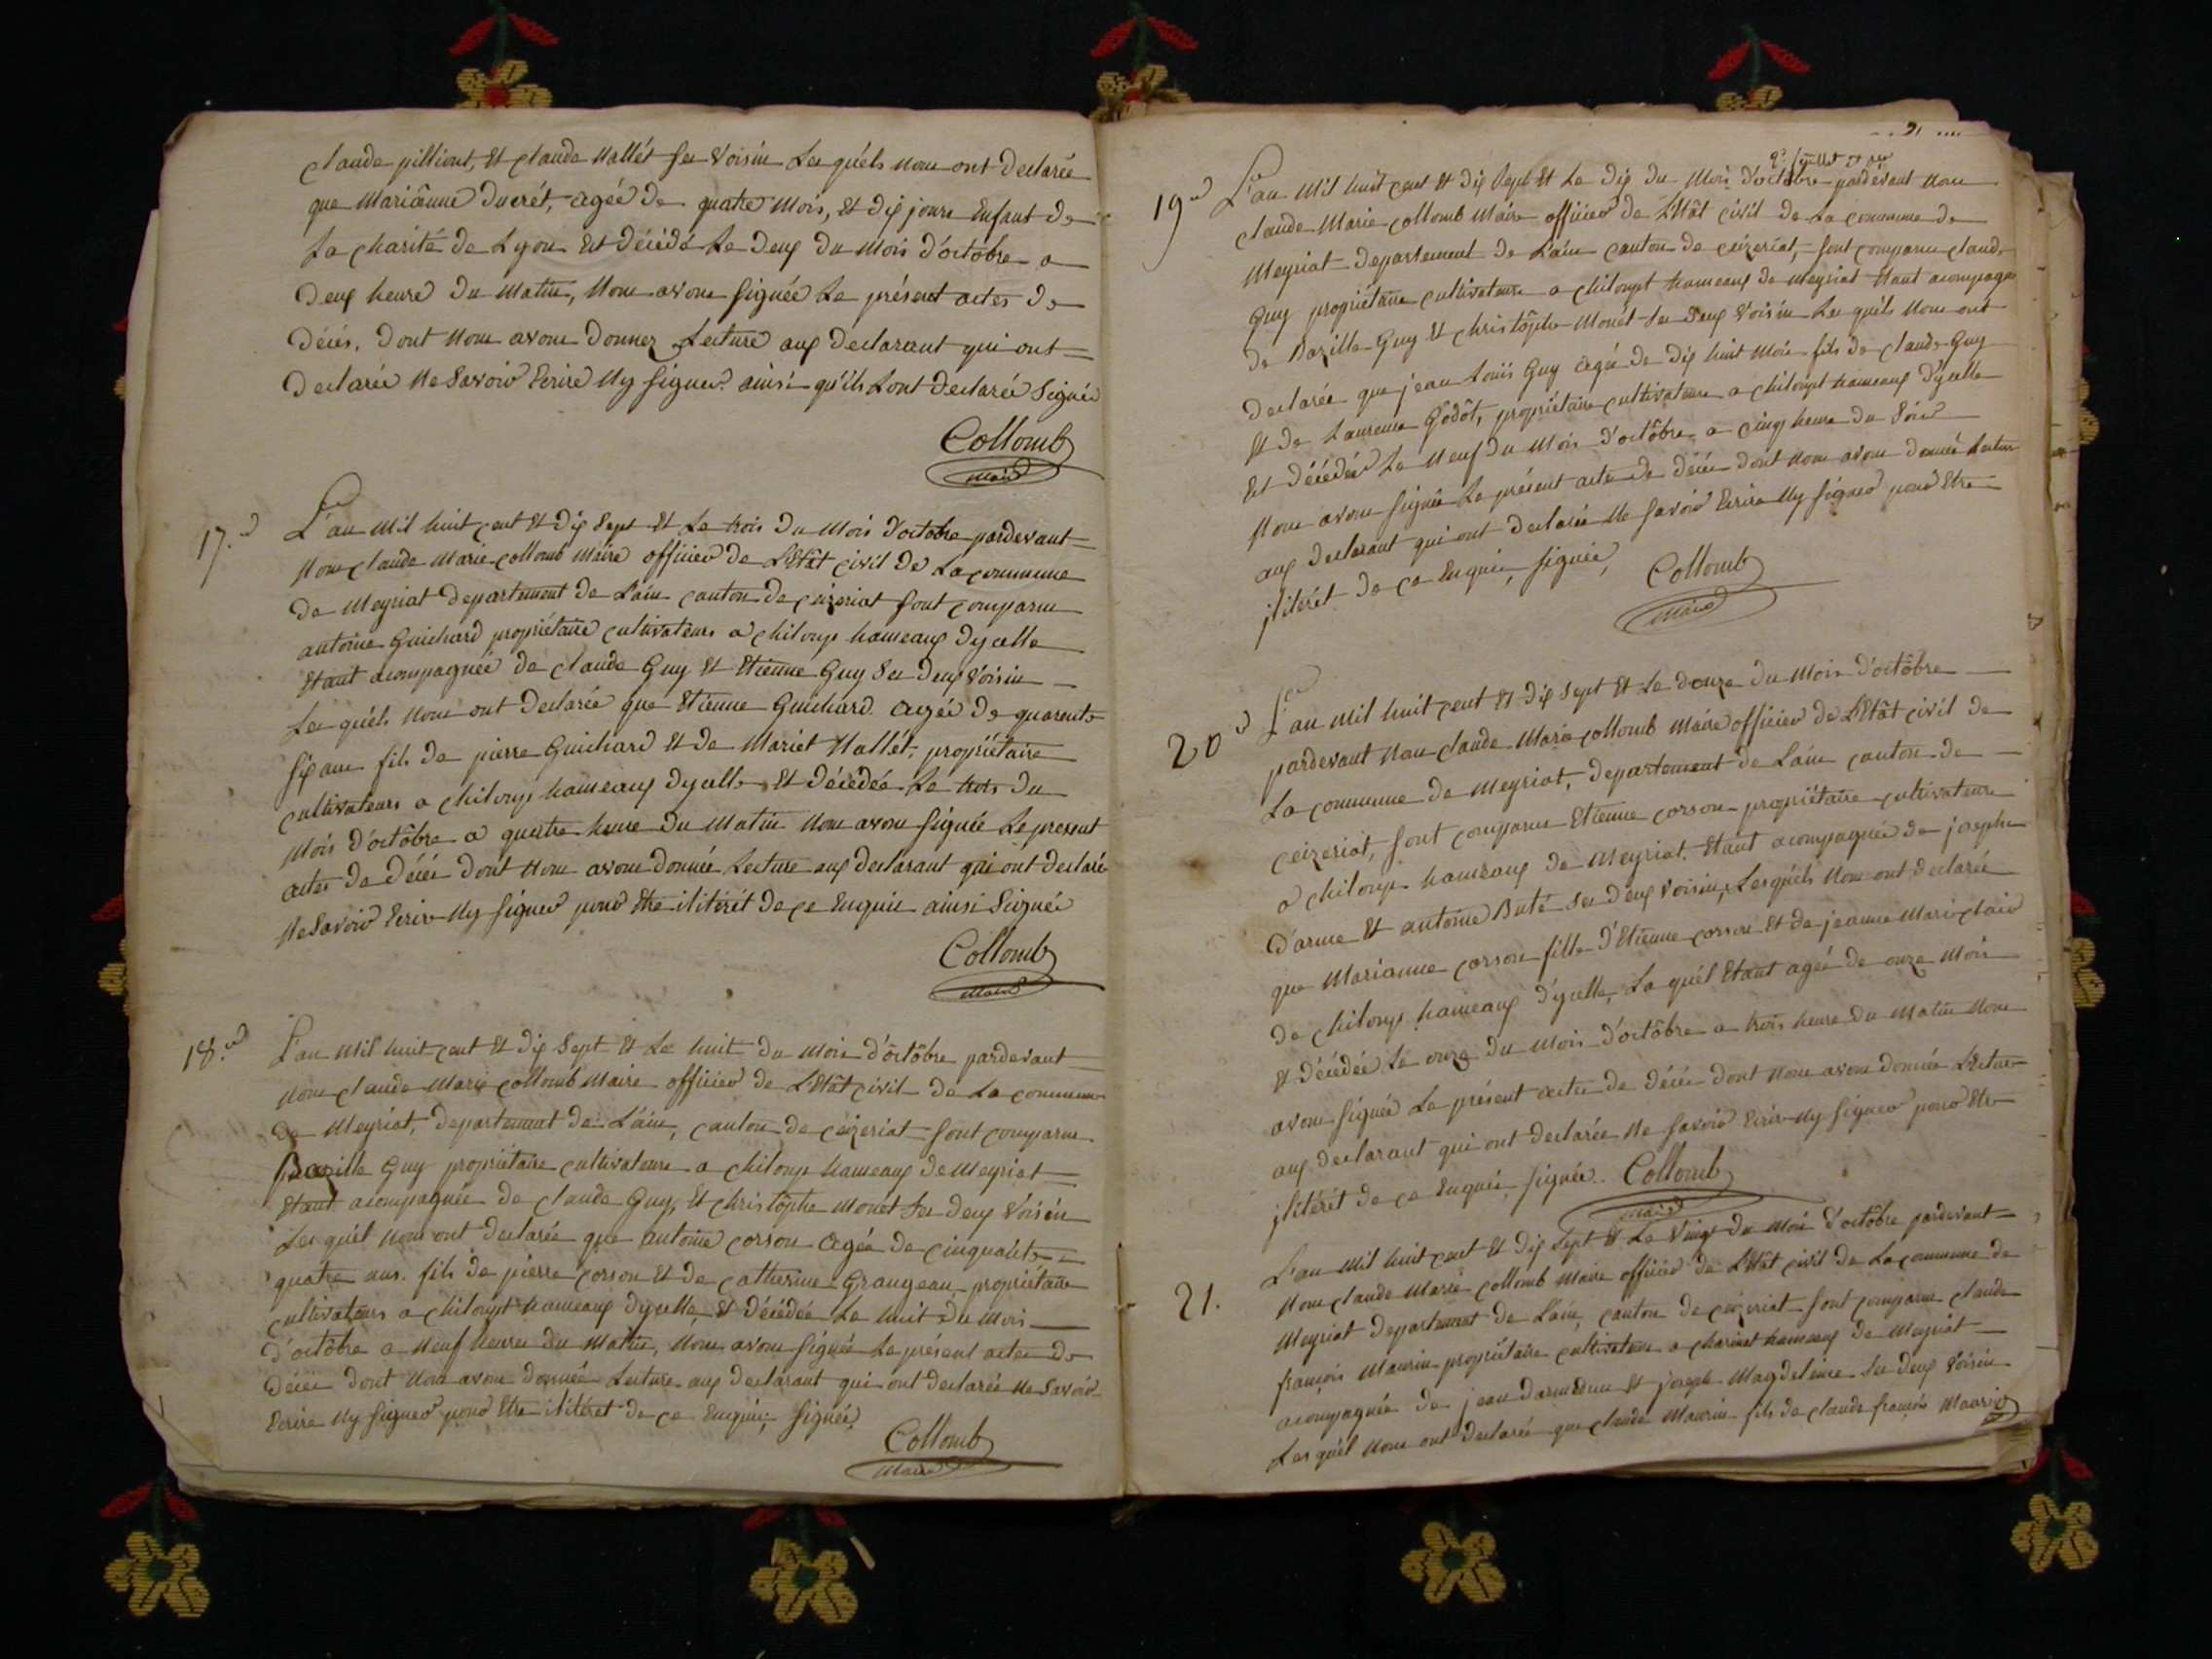 claude pillion, Et claude Hallét ses Voisin Les quéls nous ont declarée
que Mariânne Ducrét, agéé de quatre mois, Et dix jours Enfant de
La charité de Lyon Est Décédé Le deux du mois d'octobre a
deux heure du matin, Nous avons signée Le présent actes de
décés. dont nous avons donnez Lecture aux declarant qui ont
declarée Ne Savoir Ecrire Ny signer. ainsi qu'ils Lont declarée Signée
Collomb
maire
17.e L'an mil huit cent Et dix Sept Et Le trois du mois d'octobre pardevant
Nous claude Marie collomb Maire officier de L'Etât civil de La commune
de Meyriat departement de L'ain canton de ceizeriat sont comparus
antoine Guichard propriétaire cultivateurs a chiloup hameaux dycelle
Etant acompagnéé de claude Guy Et Etienne Guy Ses deux Voisin
Les quéls nous ont declarée que Etienne Guichard agéé de quarente
six ans fils de pierre Guichard Et de Mariet Hallét, propriétaire
cultivateurs a chiloup hameaux dycelle, Et décédée Le trois du
Mois d'octôbre a quatre heure du matin nous avons signée Le present
actes de décés dont nous avons donnée Lecture aux declarant qui ont declaré
Ne Savoir Ecrire Ny signer pour Etre ilitérét de ce Enquis ainsi Signéé
Collomb
maire
18.e L'an mil huit cent Et dix Sept Et Le huit du mois d'octôbre pardevant
nous claude Marie collomb Maire officier de L'Etât civil de La commune
de Meyriat, departement de L'ain, canton de ceizeriat sont comparus
Bazille Guy propriétaire cultivateurs a chiloup hameaux de Meyriat
Etant acompagnéé de claude Guy, Et christôphe Monét Ses deux Voisin
Les quél nous ont declarée que antoine corson agéé de cinquante
quatre ans. fils de pierre corson Et de catherine Grangean propriétaire
cultivateurs a chiloupt hameaux dycelle, Et décédée Le huit du mois
d'octôbre a neuf heures du matin, nous avons signée Le présent actes de
décés dont nous avons donnée Lecture aux declarant qui ont declarée ne savoir
Ecrire Ny signer pour Etre ilitéret de ce Enquis, signéé,
Collomb
maire
19.e L'an mil huit cent Et dix Sept Et Le dix du mois d'octobre pardevant nous
claude Marie collomb Maire officier de L'Etât civil de La commune de
Meyriat departement de L'ain canton de ceizeriat, sont comparus claude
Guy propriétaire cultivateurs a chiloupt hameaux de Meyriat Etant acompagné
de Bazille Guy Et christôphe Monét Ses deux Voisin Les quéls nous ont
declarée que jean Louis Guy agéé de dix huit mois fils de claude Guy
Et de Laurence Gôdôt, propriétaire cultivateurs a chiloupt hameaux d'ycelle
Est décédée Le neuf du mois d'octôbre a cinq heure du Soir
Nous avons signée Le présent acte de décés dont nous avons donnée Lecture
aux declarant qui ont declarée Ne Savoir Ecrire Ny signer pour Etre
jlitérét de ce Enquis, signéé,
Collomb
maire
20.e L'an mil huit cent Et dix Sept Et Le douze du mois d'octôbre
pardevant nous claude Marie collomb Maire officier de L'Etât civil de
La commune de Meyriat, departement de L'ain canton de
ceizeriat, sont comparus Etienne corson propriétaire cultivateurs
a chiloup hameaux de Meyriat. Etant acompagnéé de joseph
d'arme Et antoine Buté Ses deux Voisin, Lesquéls nous ont declarée
que Marianne corson fille d'Etienne corson Et de jeanne Marie clair
de chiloup hameaux d'ycelle, La quél Etant agéé de onze mois
Et décédée Le onze du mois d'octôbre a trois heure du matin nous
avons signéé Le présent actes de décés dont nous avons donnée Lecture
aux declarant qui ont declarée Ne Savoir Ecrire Ny signer pour Etre
jlitérét de ce Enquis, signée. Collomb
maire
21. L'an mil huit cent Et dix Sept Et Le Vingt du mois d'octobre pardevant
Nous claude Marie collomb Maire officier de L'Etât civil de La commune de
Meyriat departement de L'ain, canton de ceizeriat sont comparus claude
françois Maurin propriétaire cultivateurs a charinet hameaux de Meyriat
acompagnéé de jean Et joseph Magdeleine Ses deux Voisin
Les quél nous ont declaréé que claude Maurin fils de claude françois Maurin